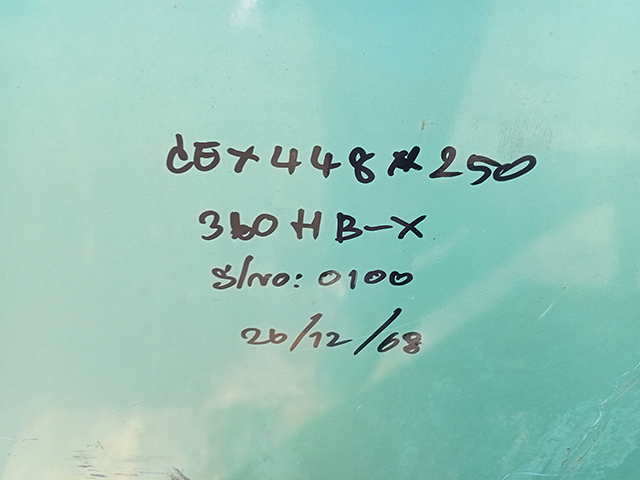 CEX448*250
360HB-X
S/No: 0100
26/12/08